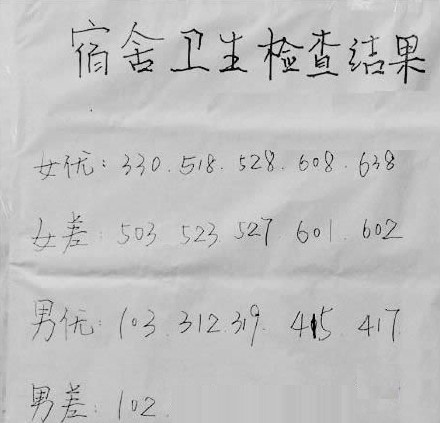 宿舍卫生检查结果
女优：330．518．528．608．638
女差：503 523 527 601．602
男优：103．312．319．415．417
男差：102．